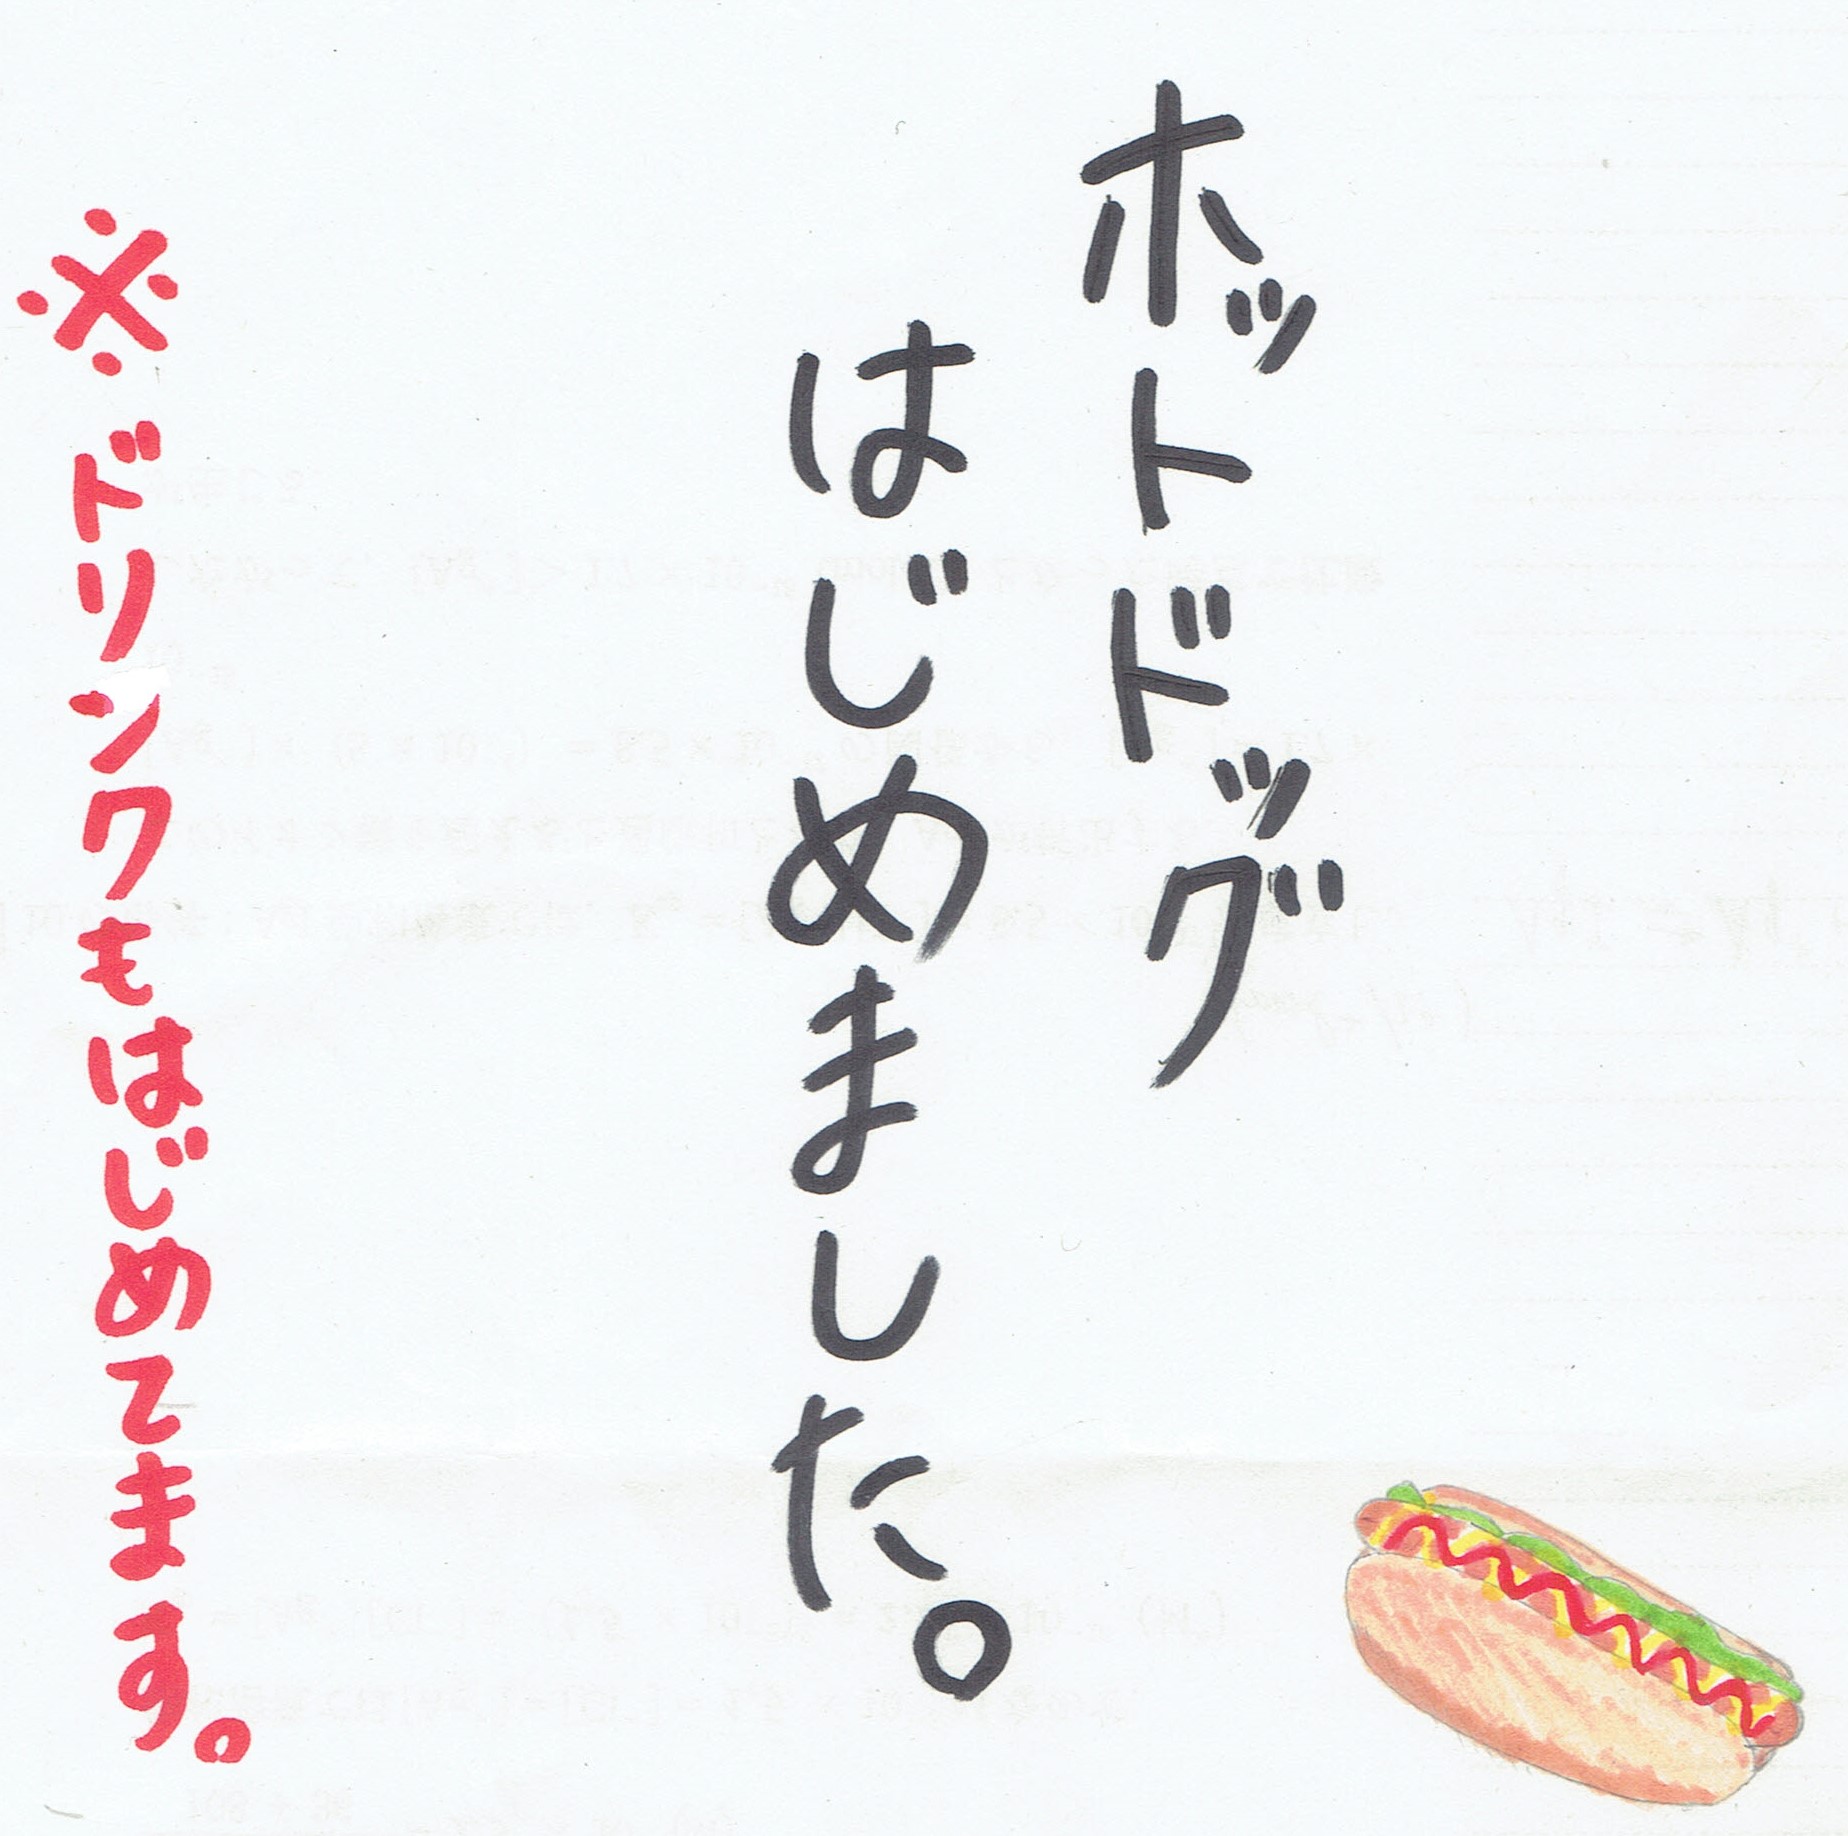 ホットドッグ
はじめました。
※ドリンクもはじめてます。